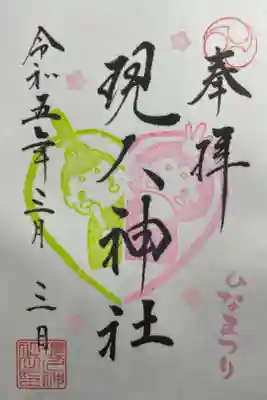 奉拝
現人神社
令和五年三月三日
ひなまつり